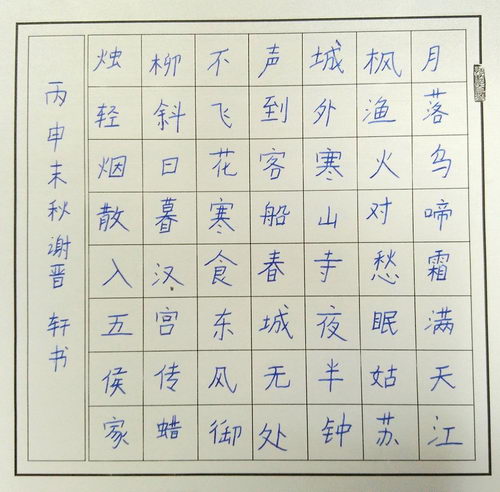 月落乌啼霜满天江
枫渔火对愁眠姑苏
城外寒山寺夜半钟
声到客船春城无处
不飞花寒食东风御
柳斜日暮汉宫传蜡
烛轻烟散入五侯家
丙申末秋谢晋轩书